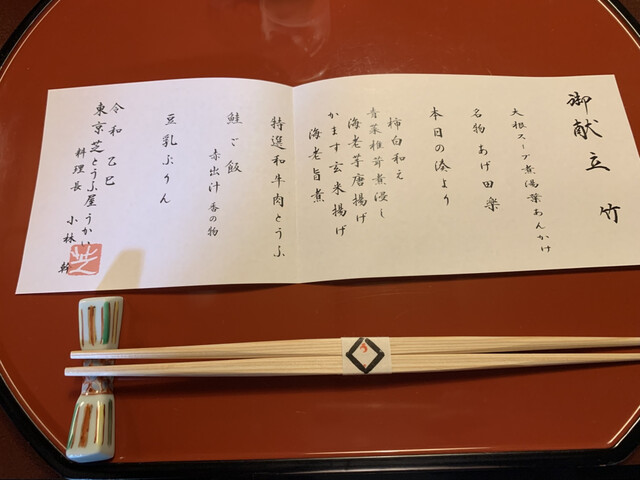 御献立 竹
大根スープ煮湯葉あんかけ
名物 あげ田楽
本日の湊より
柿白和え
青菜椎茸煮浸し
海老芋唐揚げ
かます玄米揚げ
海老旨煮
特選和牛肉とうふ
鮭ご飯
赤出汁 香の物
豆乳ぷりん
令和 乙巳
東京芝とうふ屋うかい
料理長 小林 幹